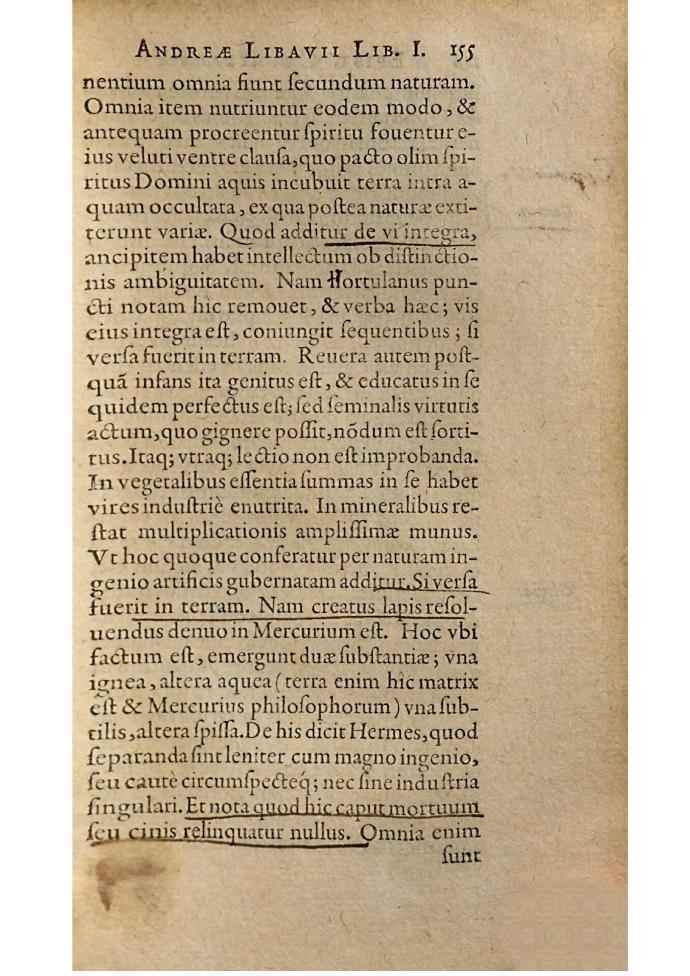 ANDREÆ LIBAVII LIB. I. 155
nentium omnia fiunt ſecundum naturam.
Omnia item nutriuntur eodem modo, &
antequam procreentur ſpiritu fouentur e-
ius veluti ventre clauſa, quo pacto olim ſpi-
ritus Domini aquis incubuit terra intra a-
quam occultata, ex qua poſtea naturæ exti-
terunt variæ. Quod additur de vi integra,
ancipitem habet intellectum ob diſtinctio-
nis ambiguitatem. Nam Hortulanus pun-
cti notam hic remouet, & verba hæc; vis
eius integra eſt, coniungit ſequentibus; ſi
verſa fuerit in terram. Reuera autem poſt-
quã infans ita genitus eſt, & educatus in ſe
quidem perfectus eſt; ſed ſeminalis virtutis
actum, quo gignere poſſit, nõdum eſt ſorti-
tus. Itaq; vtraq; lectio non eſt improbanda.
In vegetalibus eſſentia ſummas in ſe habet
vires induſtriè enutrita. In mineralibus re-
ſtat multiplicationis ampliſſimæ munus.
Vt hoc quoque conferatur per naturam in-
genio artificis gubernatam additur. Si verſa
fuerit in terram. Nam creatus lapis reſol-
uendus denuo in Mercurium eſt. Hoc vbi
factum eſt, emergunt duæ ſubſtantiæ; vna
ignea, altera aquea (terra enim hic matrix
eſt & Mercurius philoſophorum) vna ſub-
tilis, altera ſpiſſa. De his dicit Hermes, quod
ſeparanda ſint leniter cum magno ingenio,
ſeu cautè circumſpecteq́; nec ſine induſtria
ſingulari. Et nota quod hic caput mortuum
ſeu cinis relinquatur nullus. Omnia enim
ſunt